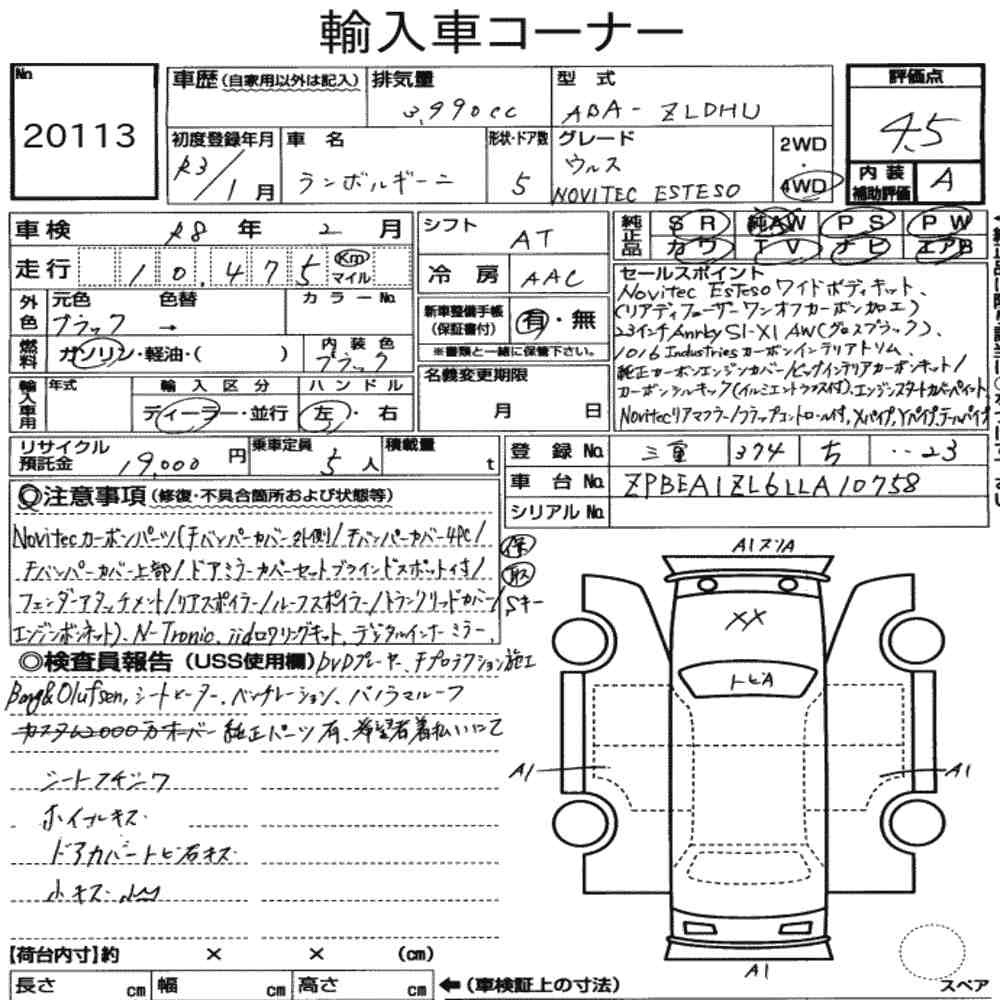 輸入車コーナー
No 20113
車歴 (自家用以外は記入)
排気量 3,990cc
型式 ABA-ZLDHU
評価点 4.5
初度登録年月 R3/1月
車名 ランボルギーニ
形状・ドア数 5
グレード ウルス NOVITEC ESTESO
2WD・4WD
内装補助評価 A
車検 R8年 2月
シフト AT
純正品 SR 純AW PS PW
カワ TV ナビ エアB
走行 10,475 Km マイル
冷房 AAC
外色 元色 ブラック 色替 → カラーNo.
新車整備手帳(保証書付) 有・無
※書類と一緒に保管下さい。
燃料 ガソリン・軽油・( )
内装色 ブラック
輸入車用 年式 輸入区分 ディーラー・並行 ハンドル 左・右
名義変更期限 月 日
セールスポイント
Novitec Estesoワイドボディキット、
(リアディフューザーワンオフカーボン加工)
23インチAnrky S1-X1 AW(グロスブラック)、
1016 Industriesカーボンインテリアトリム、
純正カーボンエンジンカバー/ビッグインテリアカーボンキット/
カーボンシルキック(イルミエントランス付)、エンジンスタートカバーペイント
Novitecリアマフラー/フラップコントロール付、Xパイプ、Yパイプ、テールパイプ
リサイクル預託金 19,000円
乗車定員 5人
積載量 t
登録No. 三重 374 ち ・・23
車台No. ZPBEA1ZL6LLA10758
シリアルNo.
◎注意事項 (修復・不具合箇所および状態等)
Novitecカーボンパーツ(Fバンパーカバー外側/Fバンパーカバー4PC/
Fバンパーカバー上部/ドアミラーカバーセットブラインドスポット付/
フェンダーアタッチメント/リアスポイラー/ルーフスポイラー/トランクリッドカバー/
エンジンボンネット)、N-Tronic、iidロワリングキット、デジタルインナーミラー、
保
取
Sキー
◎検査員報告 (USS使用欄) DVDプレーヤー、Fプロテクション施工
Bang&Olufsen、シートヒーター、ベンチレーション、パノラマルーフ
カスタム2000万オーバー 純正パーツ有、希望者着払いにて
シートフチジワ
ホイールキズ
ドアカバートビ石キズ
小キズ
A1 スリA
XX
トビA
A1
A1
A1
【荷台内寸】約 × × (cm)
長さ cm 幅 cm 高さ cm
←(車検証上の寸法)
スペア